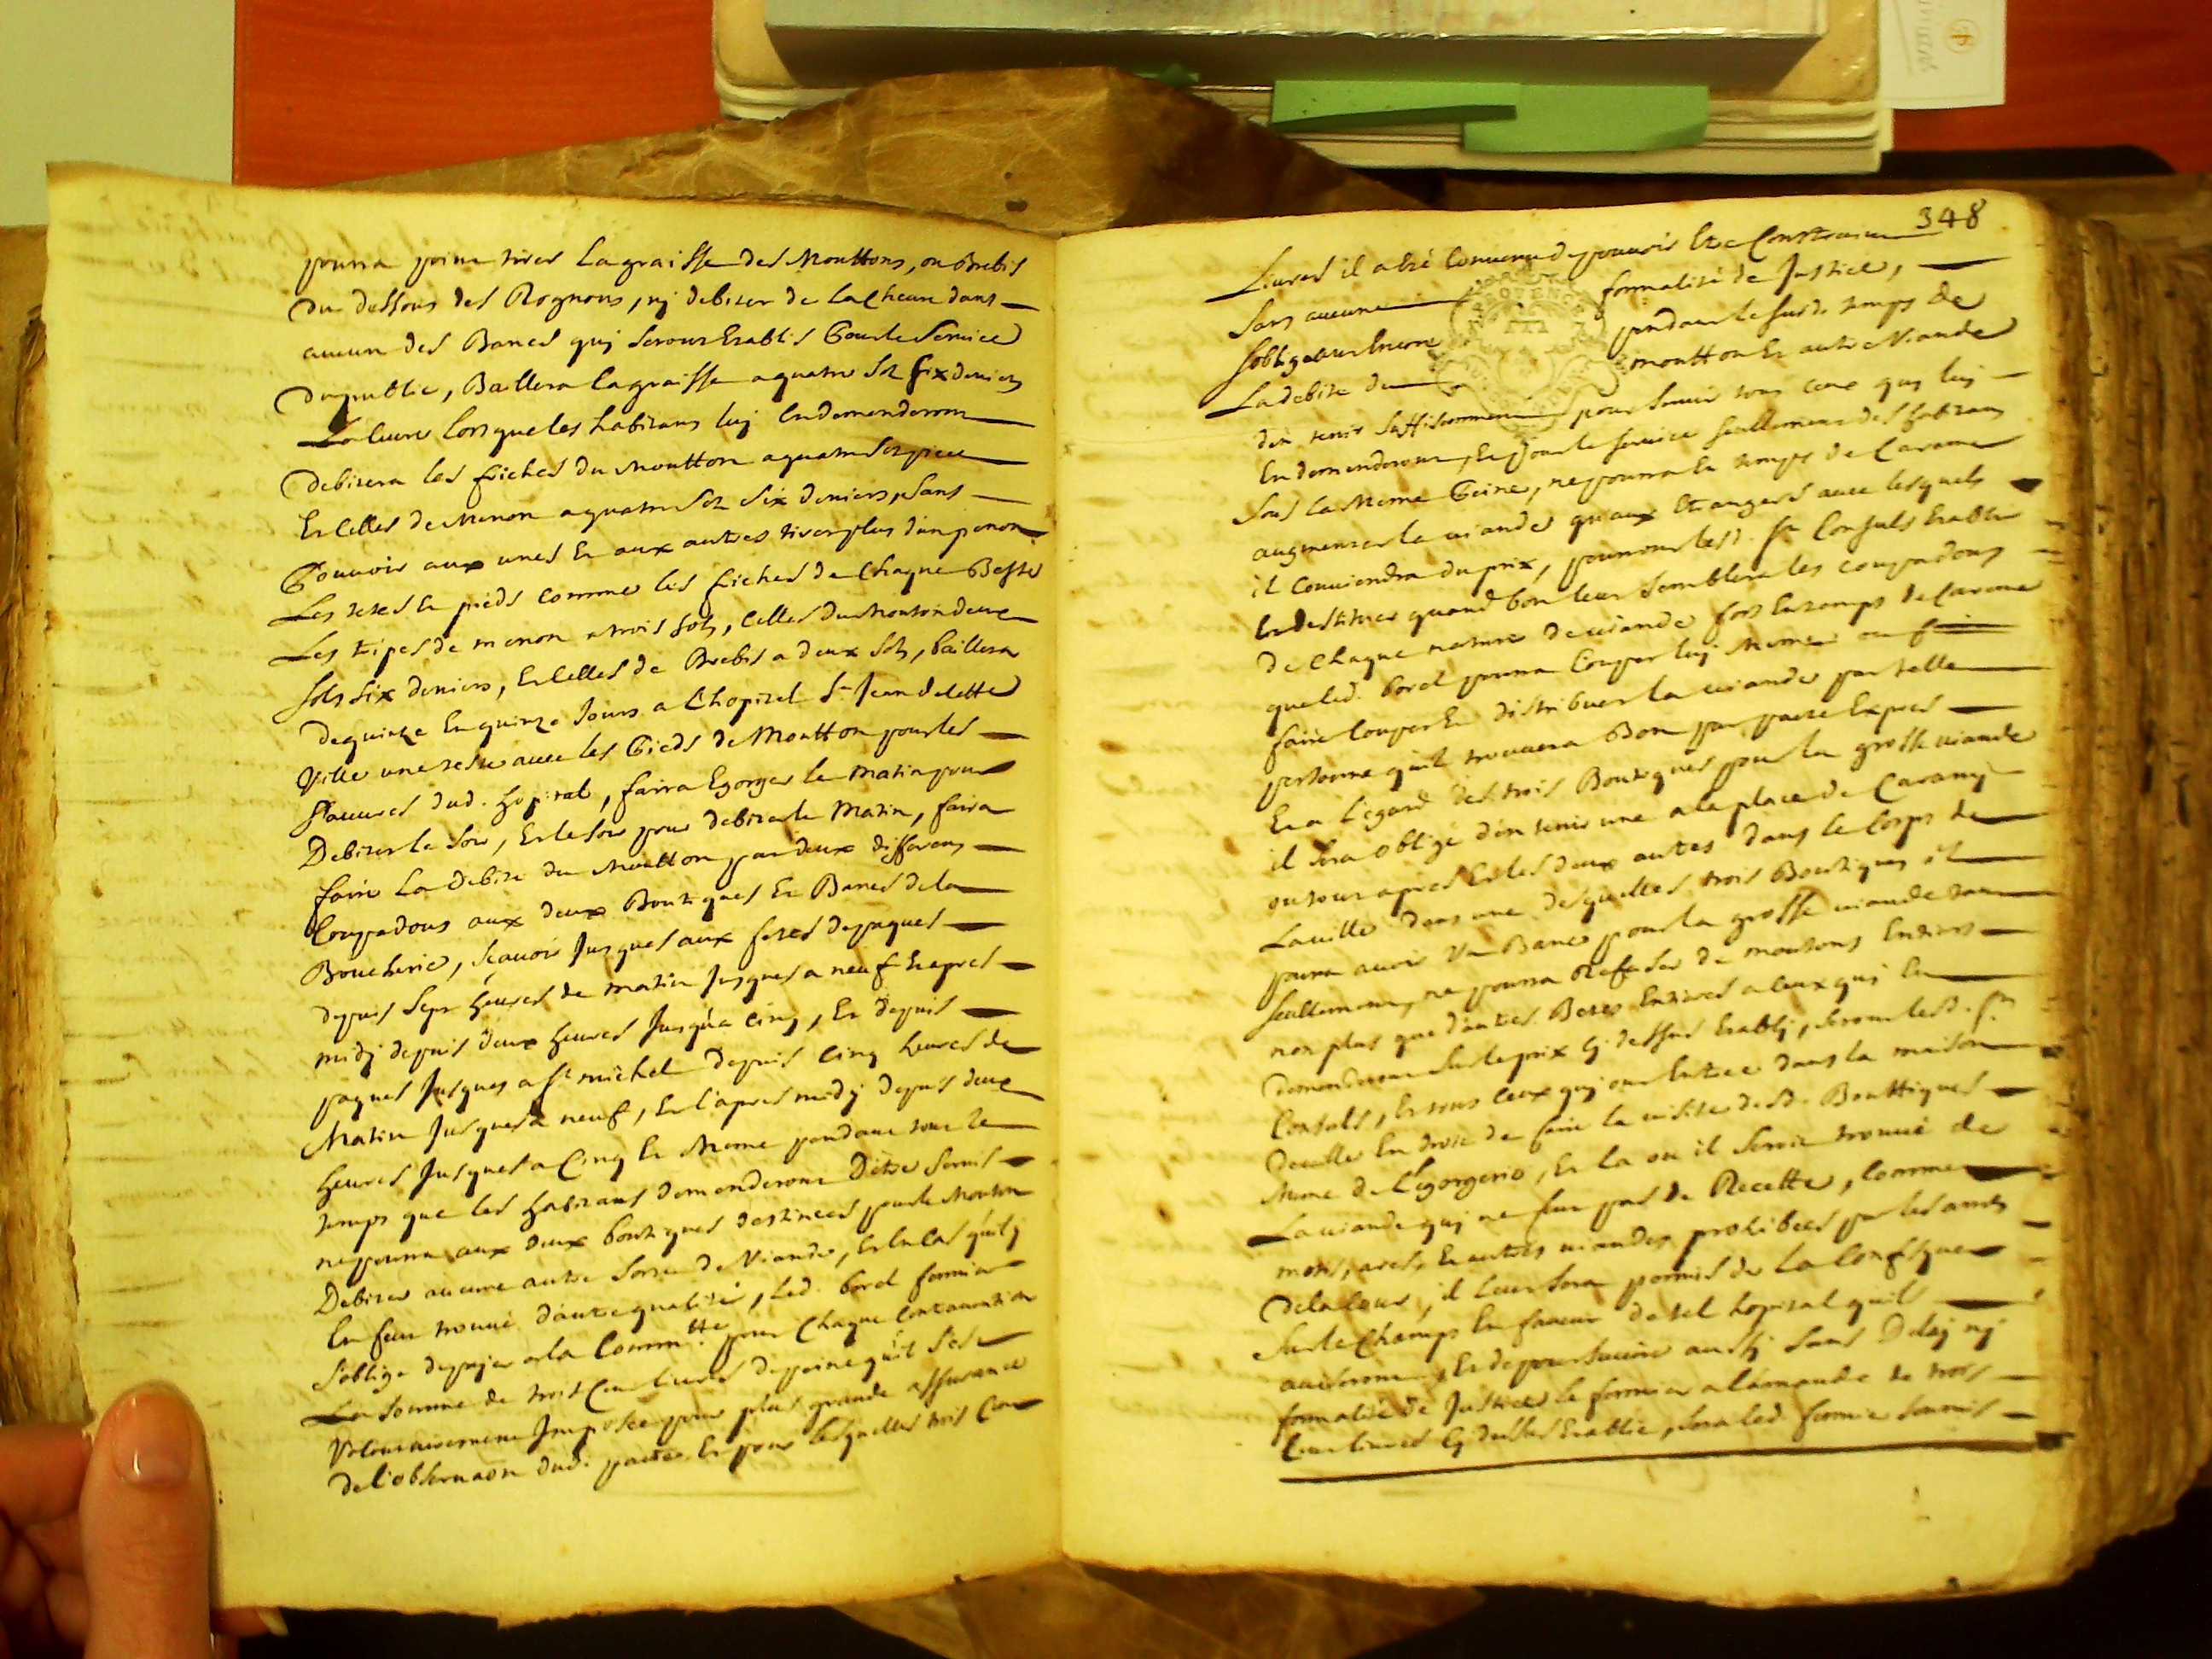 pourra point tirer la graisse des Mouttons, ou Brebis
du dessous des Rognons, nj debiter de la Cheure dans
aucun des Bancs quj seront Establis Pour le Seruice
du publie, Baillera la graisse a quatre solz six deniers
La liure lors que les habitans luj en demanderont
Debitera les fiches du Moutton a quatre solz piece
Et Celles de Menon a quatre solz Six deniers, sans
Pouuoir aux unes Et aux autres tirer plus dun
Les testes Et pieds comme les fiches de Chaque Beste
Les tripes de menon a trois solz, Celles du Mouton deux
solz six deniers, Et Celles de Brebis a deux solz, baillera
de quinze En quinze Jours a Lhopital St Jean de cette
Ville une teste auec les Pieds de Moutton pour les
Pauures dud. hopital, faira Egorger le Matin pour
Debiter le Soir, Et le Soir pour debiter le Matin, faira
faire La debite du Moutton par deux differens
Coupadous aux deux Boutiques Et Bancs de la
Boucherie, scauoir Jusques aux festes de paques
depuis sept heures de matin Jusques a neuf Et apres
midj depuis deux heures Jusqua Cinq, Et depuis
paques Jusques a St michel depuis Cinq heures de
Matin Jusques a neuf, Et l'apres midj depuis deux
heures Jusques a Cinq Et Meme pendant tout le
temps que les habitans demanderont Detre seruis
ne pourra aux deux boutiques destinees pour le Mouton
Debiter aucune autre sorte de Viande, Et En Cas quil j
En feut trouué d'autre qualité, Led. borel fermier
s'oblige de payer a la Commtté pour Chaque Contrauention
La somme de trois Cent liures de peine quil s'est
Volontairement Imposée pour plus grande assurance
De l'obseruaon dud. pacte Et pour lesquelles trois Cent
348
Liures il a Esté Conuenu de pouuoir Etre Constraint
Sans aucune formalité de Justice,
s'obligeant Encore pendant le susd. temps de
La debite du moutton Et autre Viande
den tenir suffisamment pour seruir tous Ceux quj luj
En demanderont, Et Pour le seruice seullement des habitans
sous la Meme Peine, ne pourra En temps de Careme
augmenter la viande quaux Etrangers auec lesquels
il Conuiendra du prix, pourront lesd. Srs Consuls Establir
Et destituer quand bon leur semblera les coupadous
De Chaque nature de viande fors En temps de Careme
que led. borel pourra Couper luj Meme ou
faire Couper Et distribuer la viande par telle
personne quil trouuera Bon par pacte Expres
Et a l'egard des trois Boutiques pour la grosse viande
il sera obligé d'en tenir une a la place de Caramj
ou tout apres Et les deux autres dans le Corps de
La ville dans une desquelles trois Boutiques il
pourra auoir un Banc pour la grosse viande tant
seullement, ne pourra Refuser de moutons Entiers
non plus que d'autres Betes Entieres a Ceux quj En
demanderont sur le prix Cj dessus Establj, seront lesd. Srs
Consuls, Et tous Ceux quj ont Entree dans la maison
de ville En droit de faire la visite desd. Bouttiques
Meme de L'egorgerie, Et la ou il seroit trouué de
La viande quj ne fut pas de Recette, Comme
Et autres viandes prohibées par les arrets
de la Cour, il leur sera permis de La Confisquer
sur le Champs En faueur de tel hopital quils
auiseront, Et de poursuiure aussj sans Delaj nj
formalité de Justice le fermier a l'amande de trois
Cent liures Cj dessus Establie, sera led. fermier soumis